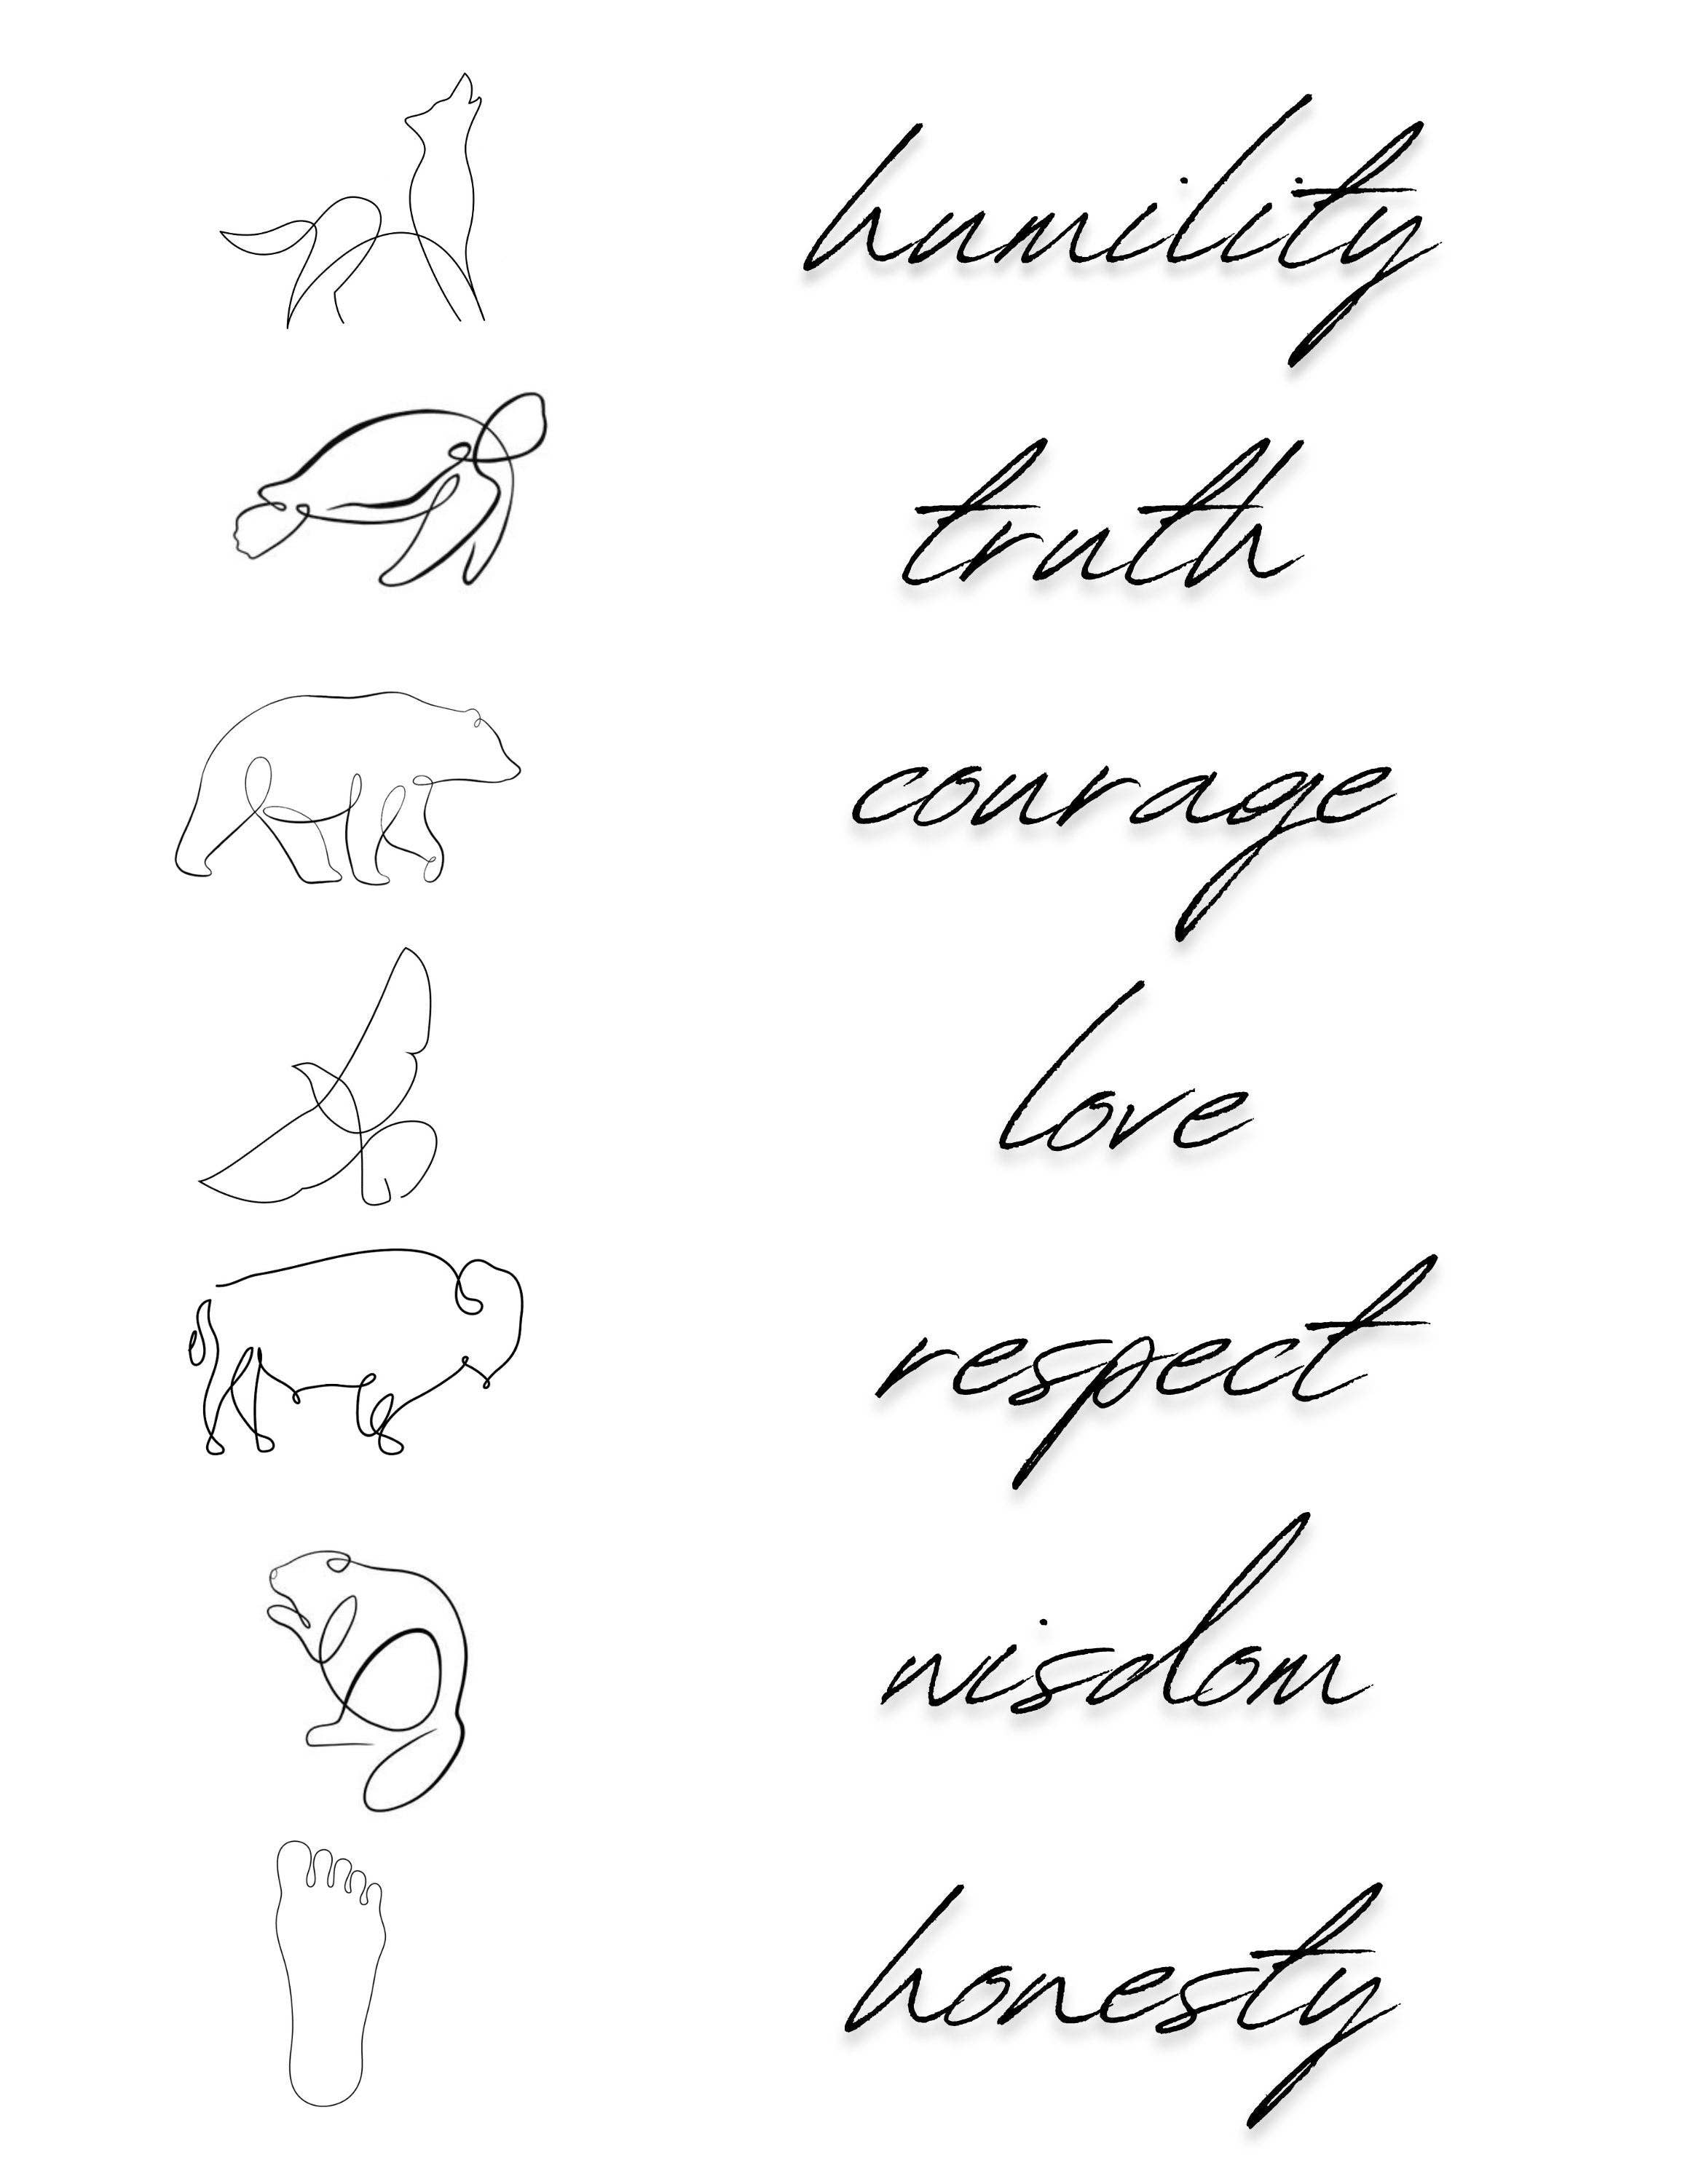 humility
truth
courage
love
respect
wisdom
honesty